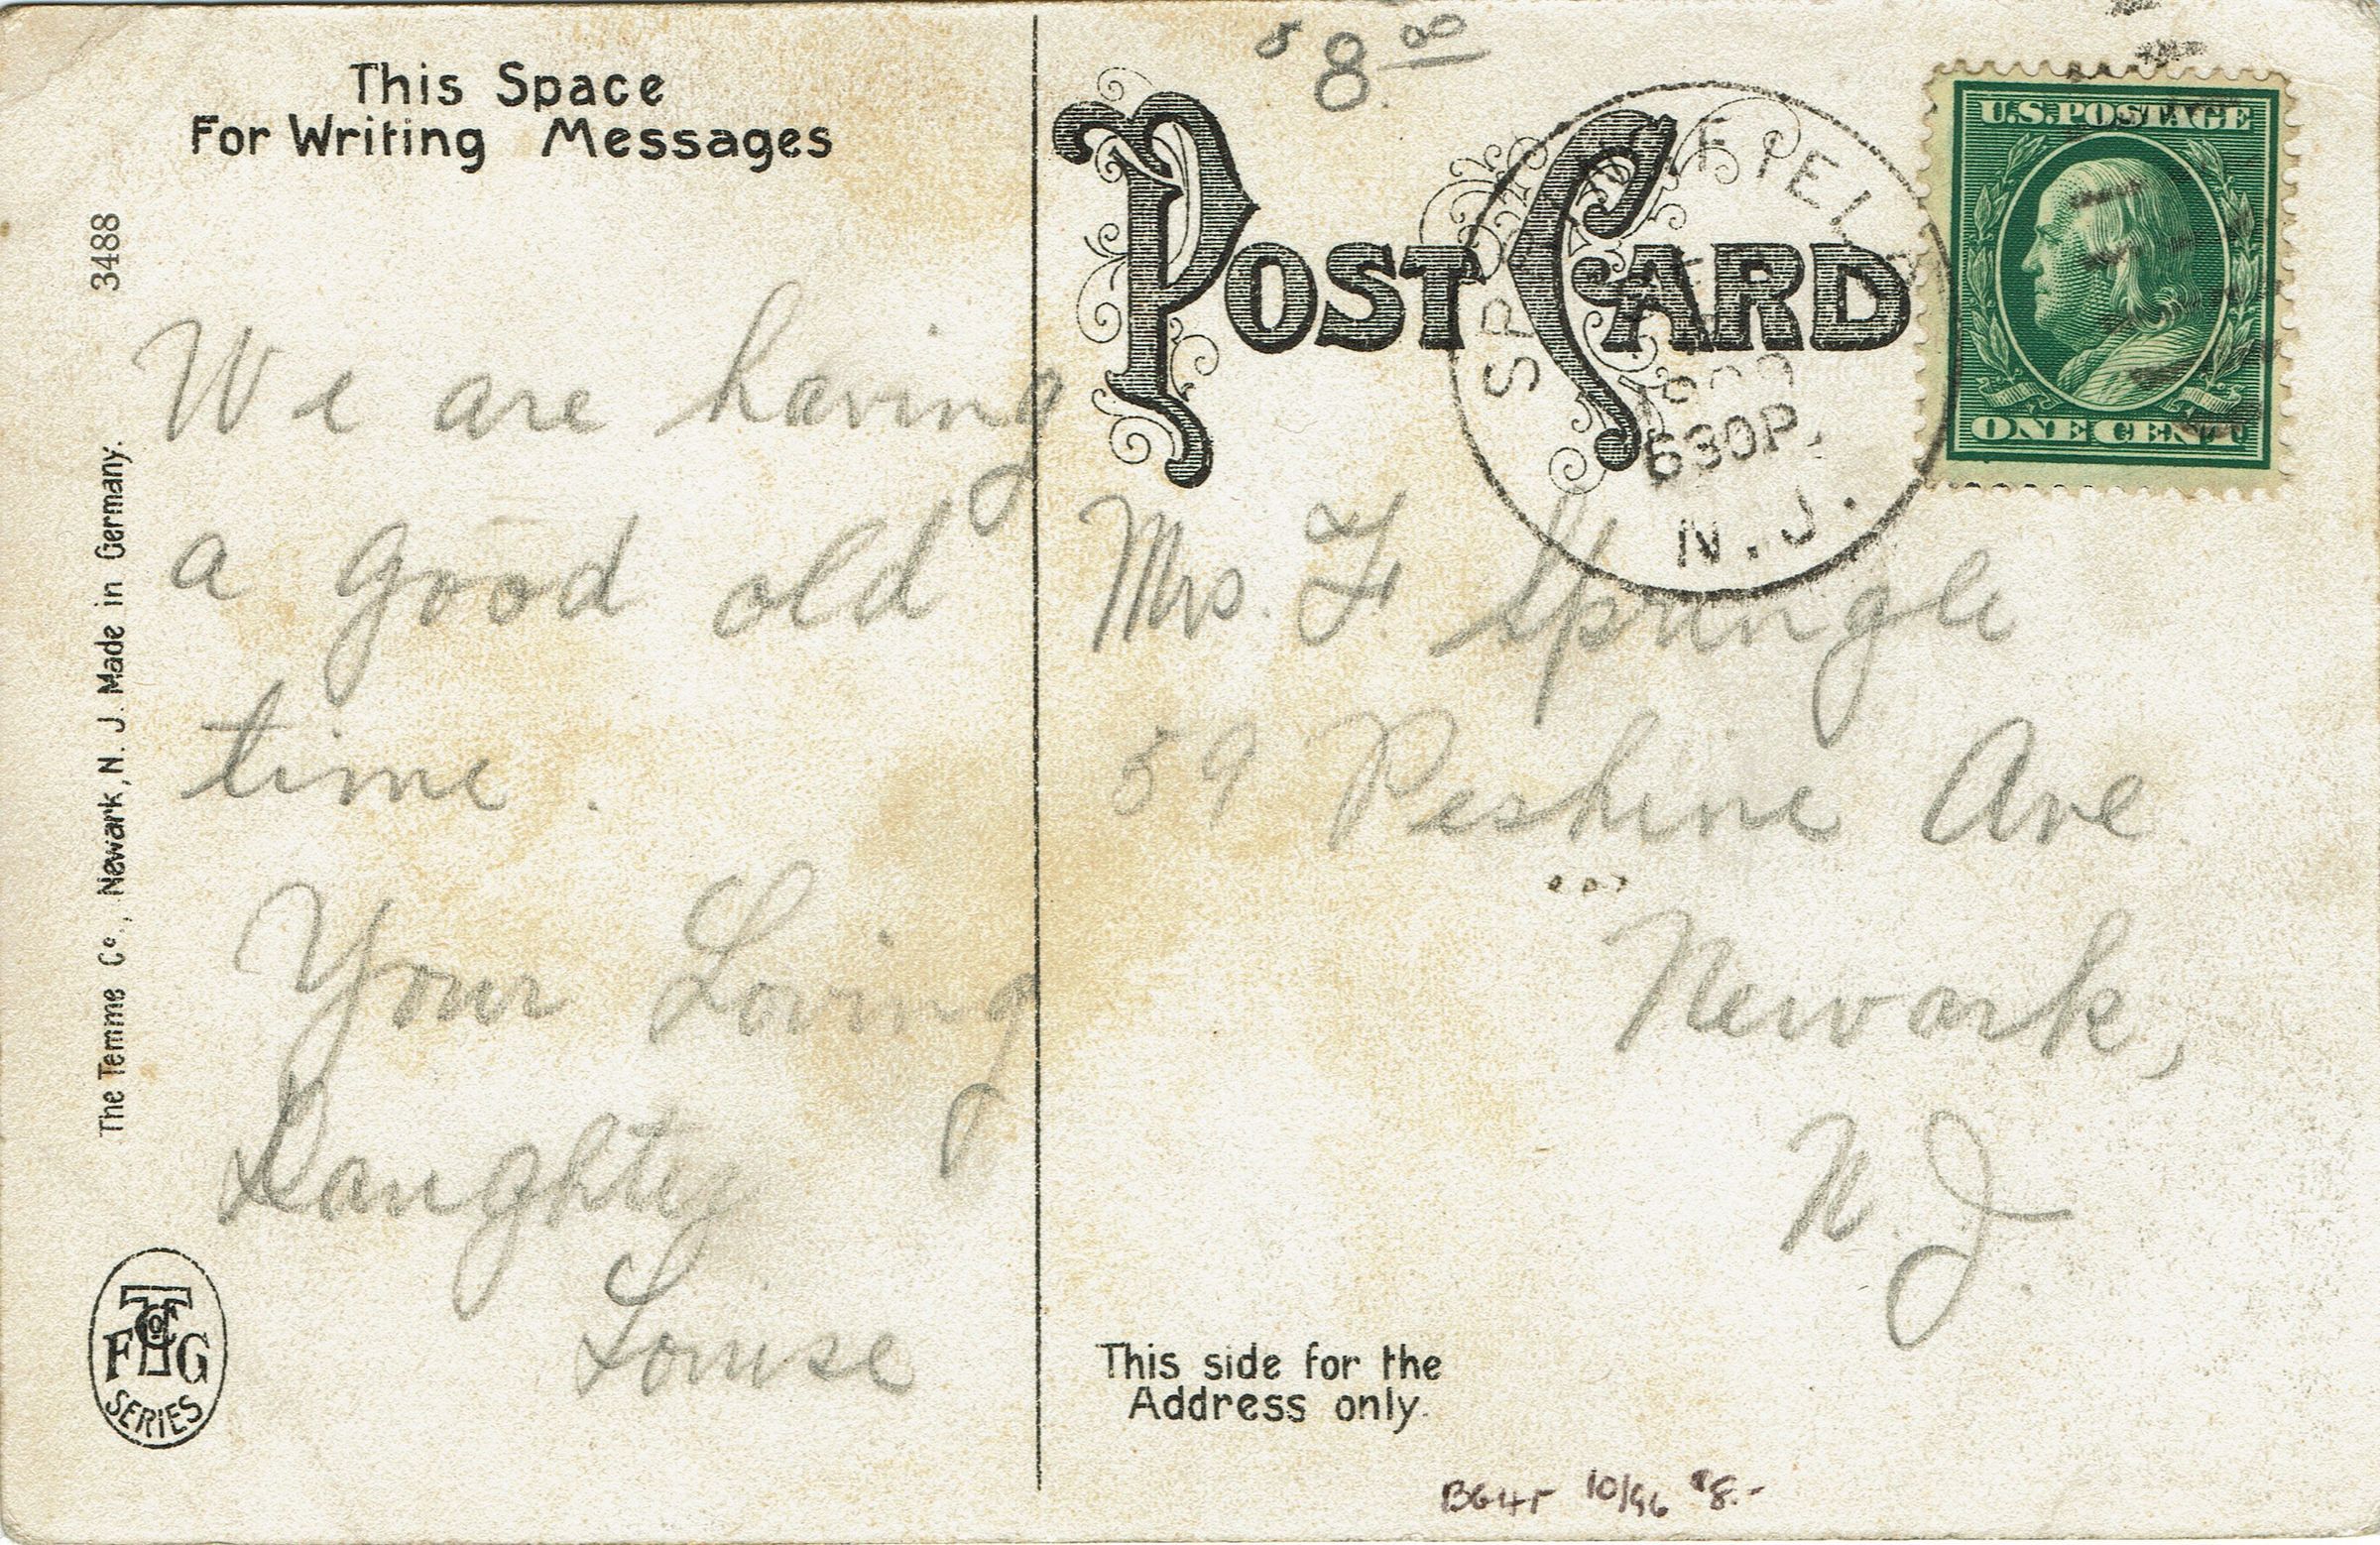 This Space
For Writing Messages
3488
The Temme Co., Newark, N. J. Made in Germany.
We are having
a good old
time.
Your Loving
Daughter
Louise
F T Co G
SERIES
$8.00
POST CARD
SPRINGFIELD
630P.
N.J.
U.S. POSTAGE
ONE CENT
Mrs. F. Springle
59 Peshine Ave
Newark,
N.J.
This side for the
Address only.
10/96 $8.-